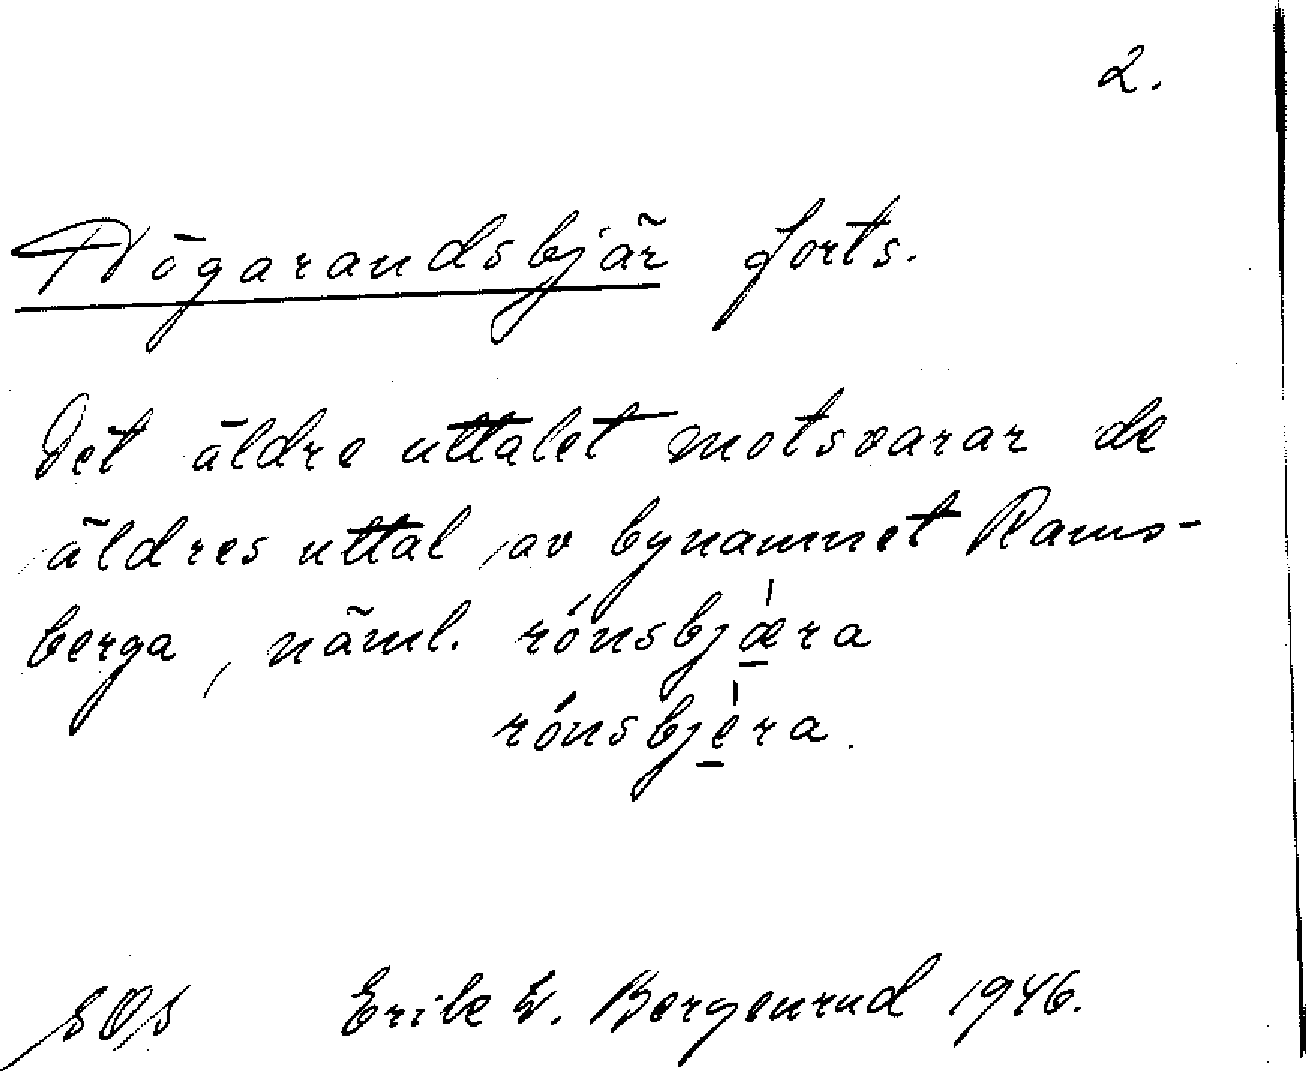 2.
Högarandsbjär forts.
Det äldre uttalet motsvarar de
äldres uttal av bynamnet Rams-
berga, näml. rónsbjæ̀ra
rónsbjèra.
SOS Erik E. Bergenrud 1946.